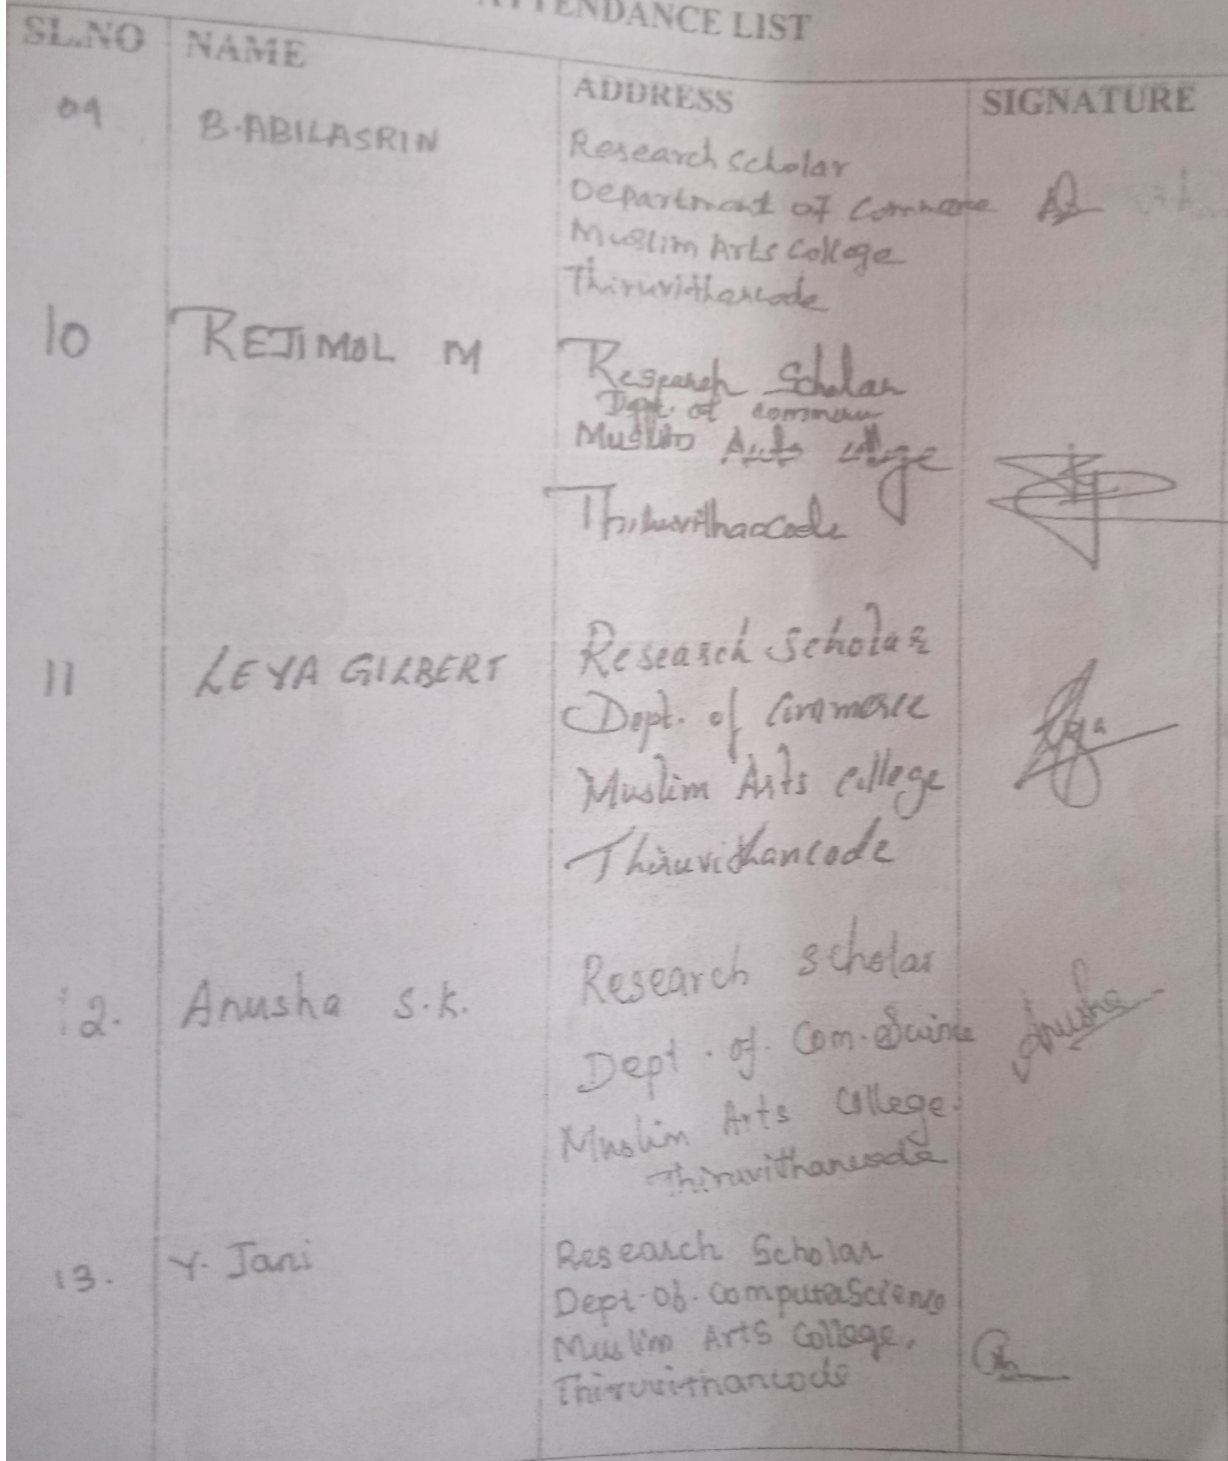 ATTENDANCE LIST
SL.NO NAME ADDRESS SIGNATURE
09 B.ABILASRIN Research Scholar
Department of Commerce
Muslim Arts College
Thiruvithancode
10 REJIMOL M Research Scholar
Dept. of commerce
Muslim Arts college
Thiruvithancode
11 LEYA GILBERT Research Scholar
Dept. of Commerce
Muslim Arts College
Thiruvithancode
12. Anusha S.K. Research Scholar
Dept. of. Com. Science Anusha
Muslim Arts College.
Thiruvithancode
13. Y. Jani Research Scholar
Dept. of. Computer Science
Muslim Arts College.
Thiruvithancode